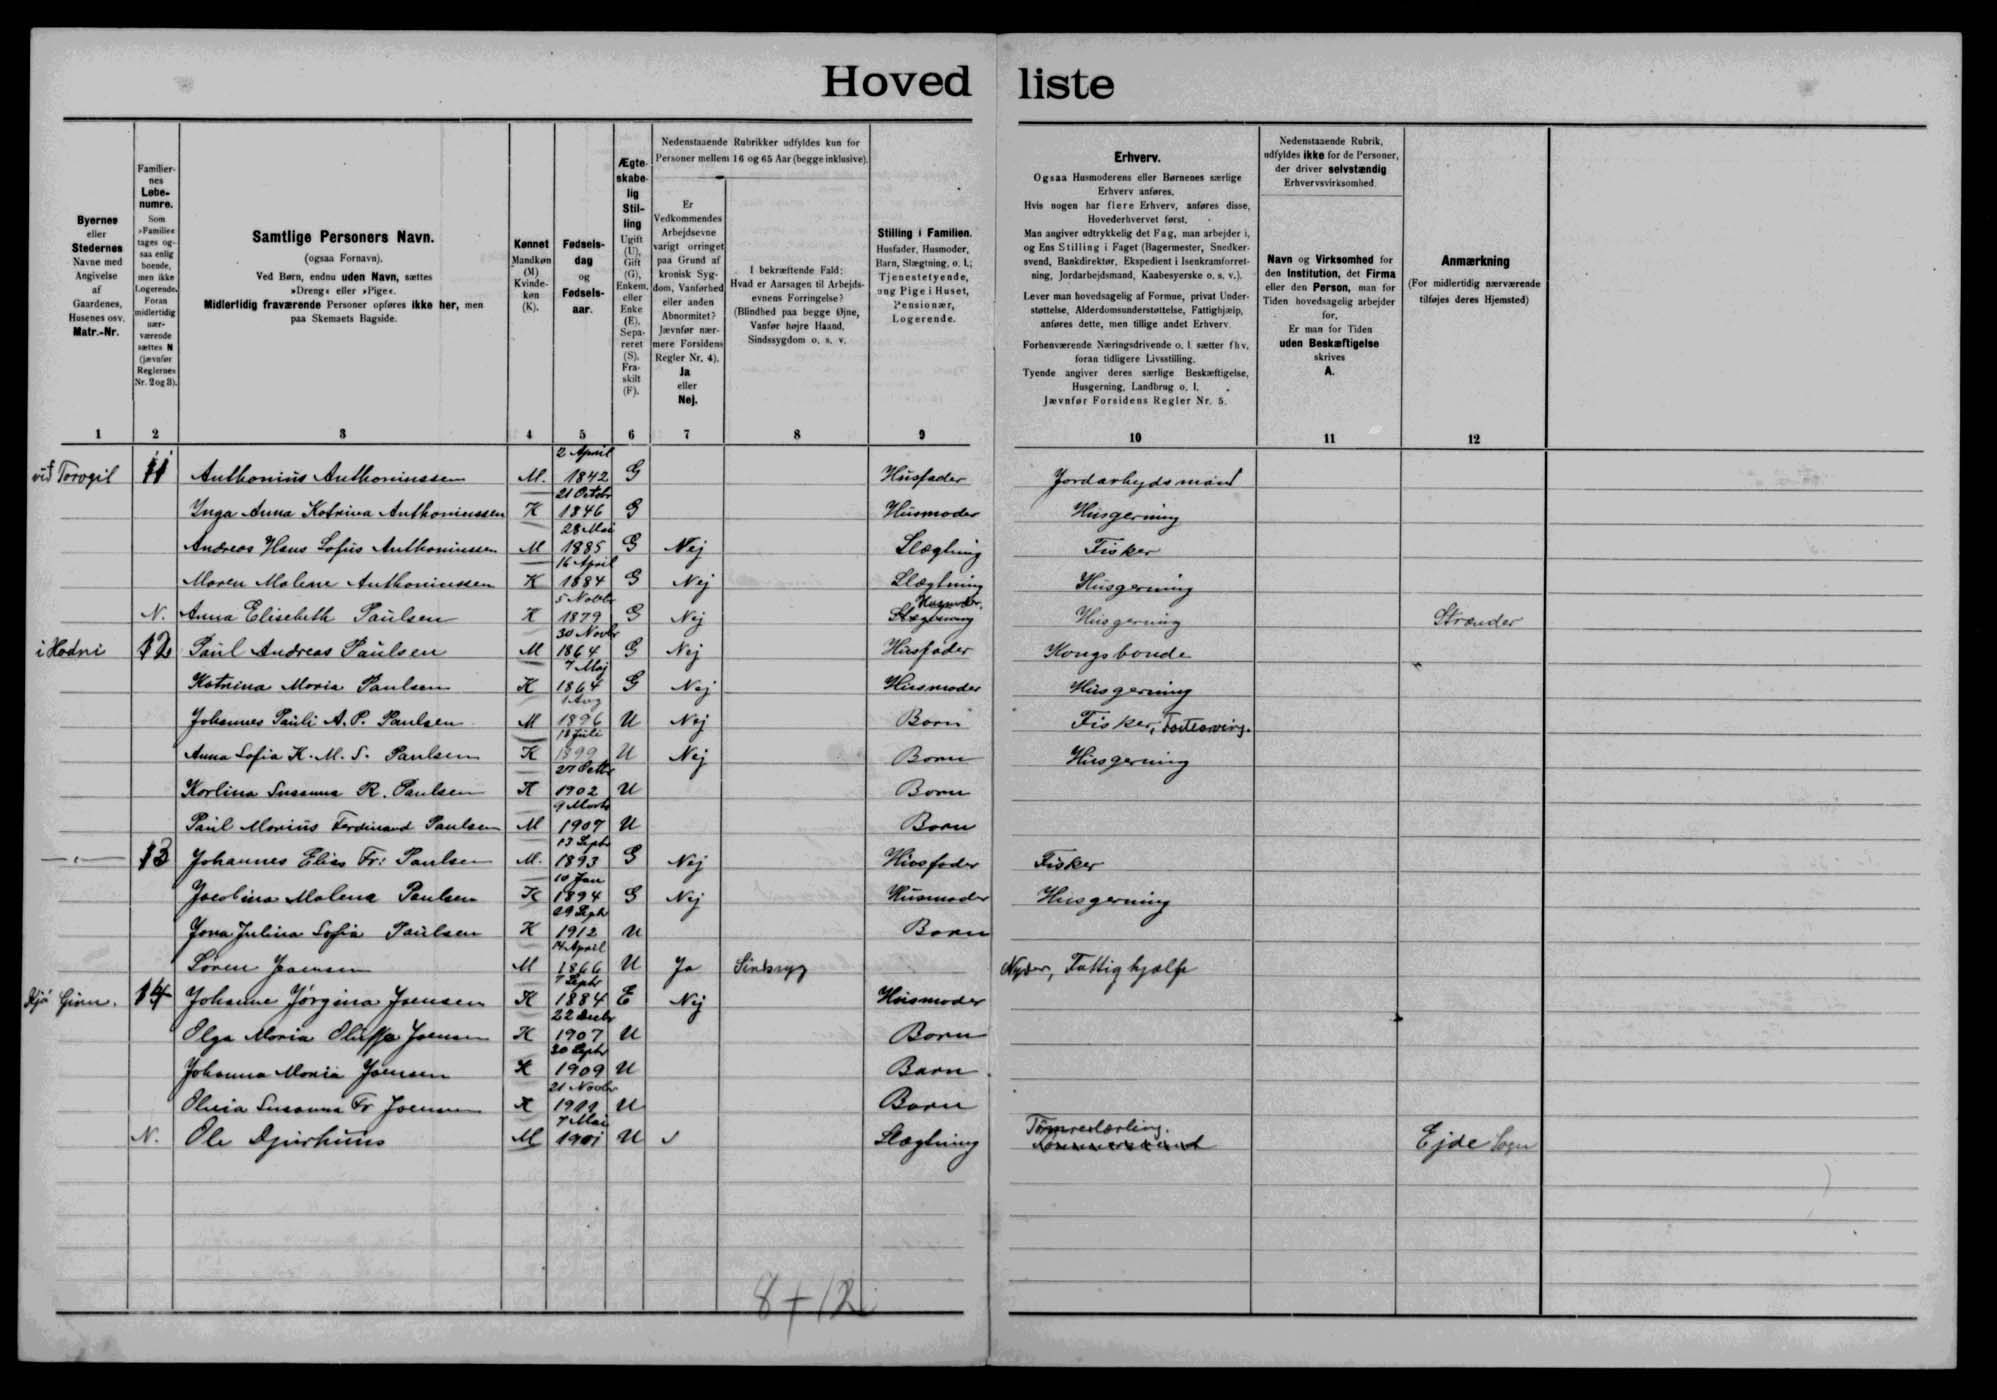 Hoved liste
Byernes
eller
Stedernes
Navne med
Angivelse
af
Gaardenes,
Husenes osv.
Matr.-Nr.
Familier-
nes
Løbe-
numre.
Som
»Familie«
tages og-
saa enlig
boende,
men ikke
Logerende.
Foran
midlertidig
nær-
værende
sættes N
(jævnfør
Reglernes
Nr. 2 og 3).
Samtlige Personers Navn.
(ogsaa Fornavn).
Ved Børn, endnu uden Navn, sættes
»Dreng« eller »Pige«.
Midlertidig fraværende Personer opføres ikke her, men
paa Skemaets Bagside.
Kønnet
Mandkøn
(M)
Kvinde-
køn
(K).
Fødsels-
dag
og
Fødsels-
aar.
Ægte-
skabe-
lig
Stil-
ling
Ugift
(U),
Gift
(G),
Enkem.
eller
Enke
(E),
Sepa-
reret
(S).
Fra-
skilt
(F).
Nedenstaaende Rubrikker udfyldes kun for
Personer mellem 16 og 65 Aar (begge inklusive).
Er
Vedkommendes
Arbejdsevne
varigt forringet
paa Grund af
kronisk Syg-
dom, Vanførhed
eller anden
Abnormitet?
Jævnfør nær-
mere Forsidens
Regler Nr. 4).
Ja
eller
Nej.
I bekræftende Fald:
Hvad er Aarsagen til Arbejds-
evnens Forringelse?
(Blindhed paa begge Øjne,
Vanfør højre Haand,
Sindssygdom o. s. v.
Stilling i Familien.
Husfader, Husmoder,
Barn, Slægtning, o. l.;
Tjenestetyende,
ung Pige i Huset,
Pensionær,
Logerende.
Erhverv.
Ogsaa Husmoderens eller Børnenes særlige
Erhverv anføres.
Hvis nogen har flere Erhverv, anføres disse,
Hovederhvervet først.
Man angiver udtrykkelig det Fag, man arbejder i,
og Ens Stilling i Faget (Bagermester, Snedker-
svend, Bankdirektør, Ekspedient i Isenkramforret-
ning, Jordarbejdsmand, Kaabesyerske o. s. v.).
Lever man hovedsagelig af Formue, privat Under-
støttelse, Alderdomsunderstøttelse, Fattighjælp,
anføres dette, men tillige andet Erhverv.
Forhenværende Næringsdrivende o. l. sætter fhv.
foran tidligere Livsstilling.
Tyende angiver deres særlige Beskæftigelse,
Husgerning, Landbrug o. l.
Jævnfør Forsidens Regler Nr. 5.
Nedenstaaende Rubrik,
udfyldes ikke for de Personer,
der driver selvstændig
Erhvervsvirksomhed.
Navn og Virksomhed for
den Institution, det Firma
eller den Person, man for
Tiden hovedsagelig arbejder
for.
Er man for Tiden
uden Beskæftigelse
skrives
A.
Anmærkning
(For midlertidig nærværende
tilføjes deres Hjemsted)
1 2 3 4 5 6 7 8 9 10 11 12
við Torvgil 11 Anthonius Anthoniussen M. 2 April 1842 G Husfader Jordarbejdsmand
Inga Anna Katrina Anthoniussen K 21 Octobr 1846 G Husmoder Husgerning
Andreas Hans Sofus Anthoniussen M 28 Mai 1885 G Nej Slægtning Fisker
Maren Malene Anthoniussen K 16 April 1884 G Nej Slægtning Husgerning
N. Anna Elisebeth Paulsen K 5 Novbr 1879 G Nej Slægtning Husmoder. Husgerning Strænder
i Hødni 12 Paul Andreas Paulsen M 30 Novbr 1864 G Nej Husfader Kongsbonde
Katrina Maria Paulsen K 7 Maj 1864 G Nej Husmoder Husgerning
Johannes Pauli A. P. Paulsen M 1 Avg 1896 U Nej Barn Fisker,
Anna Sofia K. M. S. Paulsen K 18 Juli 1899 U Nej Barn Husgerning
Karlina Susanna R. Paulsen K 27 Octbr 1902 U Barn
Paul Marius Ferdinand Paulsen M 9 Marts 1907 U Barn
— „ — 13 Johannes Elias Fr: Paulsen M. 13 Septr 1893 G Nej Husfader Fisker
Jacobina Malena Paulsen K 10 Jan 1894 G Nej Husmoder Husgerning
Jona Julina Sofia Paulsen K 29 Septr 1912 U Barn
Søren Joensen M 14 April 1866 U Ja Sintsyg Nyder, Fattighjælp
14 Johanne Jørgina Joensen K 7 Septr 1884 E Nej Husmoder
Olga Maria Oluffa Joensen K 22 Decbr 1907 U Barn
Johanna Maria Joensen K 30 Septr 1909 U Barn
Olivia Susanna Fr Joensen K 21 Novbr 1911 U Barn
N. Ole Djurhuus M 7 Mai 1901 U Slægtning Tømrerlærling. Ejde Sogn
8+12